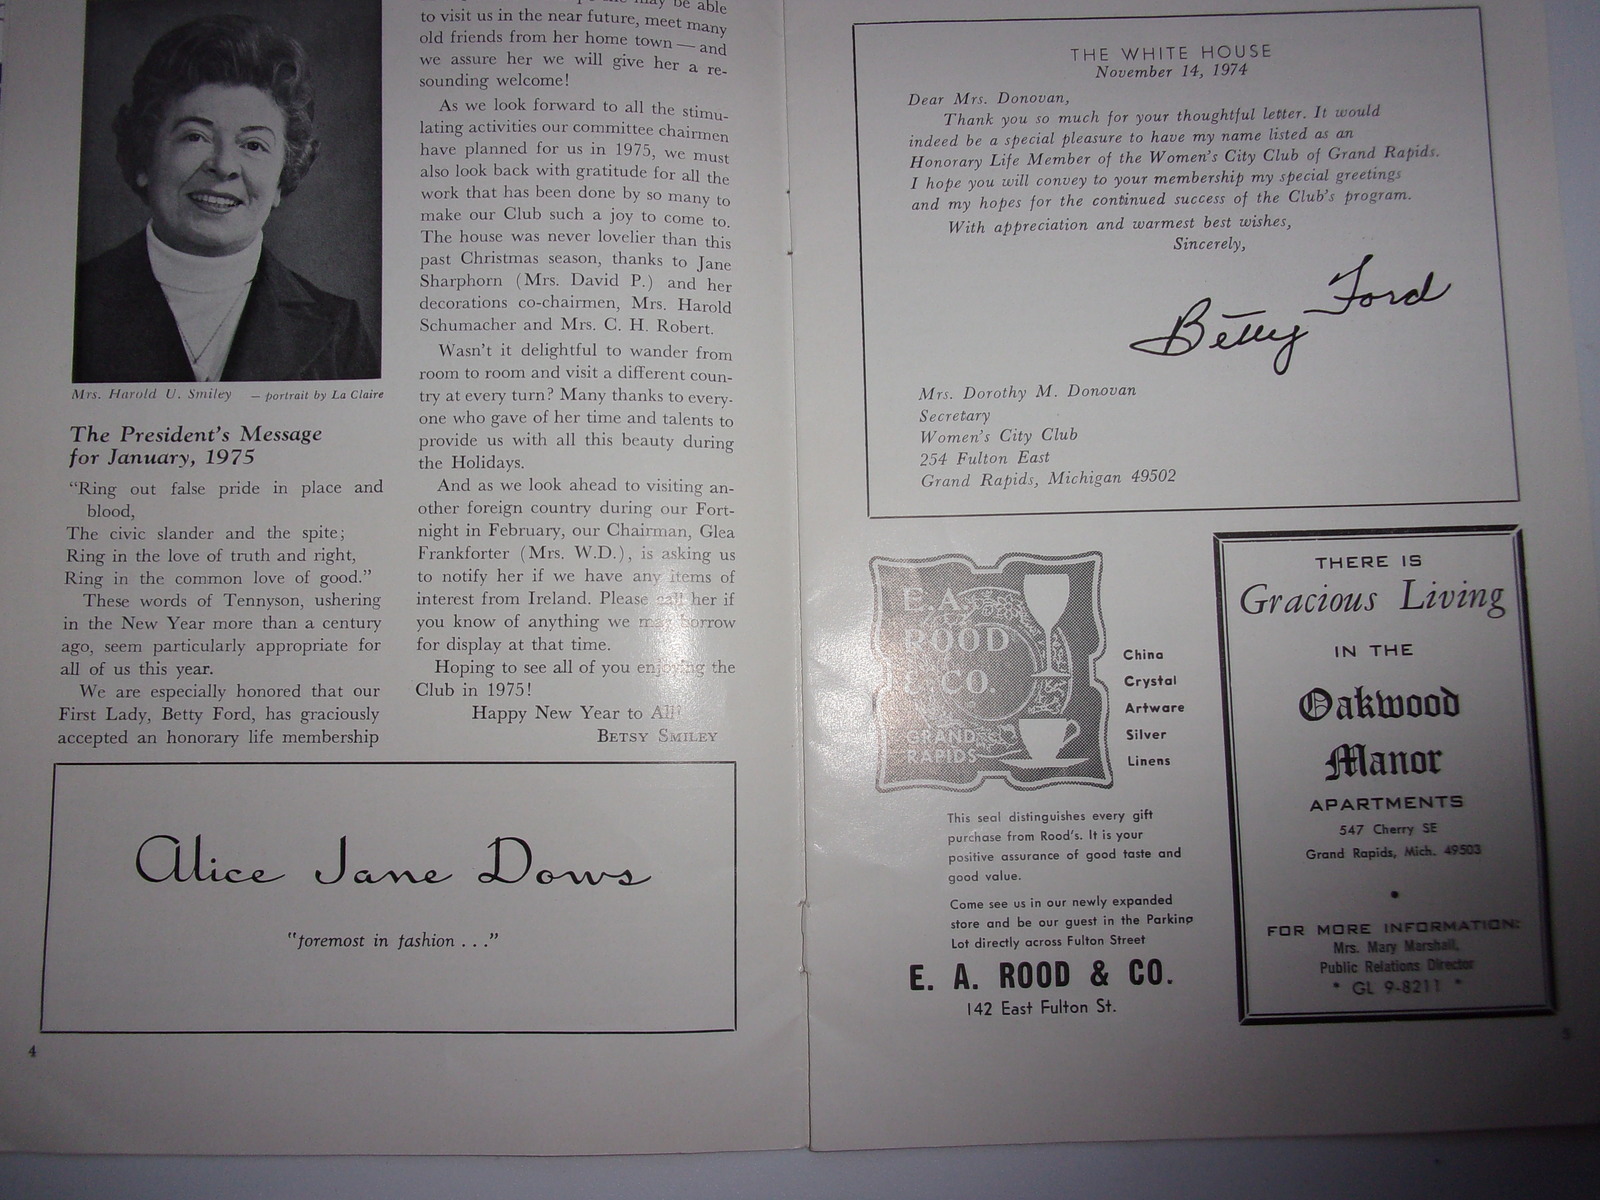 Mrs. Harold U. Smiley — portrait by La Claire
The President's Message
for January, 1975
"Ring out false pride in place and
blood,
The civic slander and the spite;
Ring in the love of truth and right,
Ring in the common love of good."
These words of Tennyson, ushering
in the New Year more than a century
ago, seem particularly appropriate for
all of us this year.
We are especially honored that our
First Lady, Betty Ford, has graciously
accepted an honorary life membership
may be able
to visit us in the near future, meet many
old friends from her home town — and
we assure her we will give her a re-
sounding welcome!
As we look forward to all the stimu-
lating activities our committee chairmen
have planned for us in 1975, we must
also look back with gratitude for all the
work that has been done by so many to
make our Club such a joy to come to.
The house was never lovelier than this
past Christmas season, thanks to Jane
Sharphorn (Mrs. David P.) and her
decorations co-chairmen, Mrs. Harold
Schumacher and Mrs. C. H. Robert.
Wasn't it delightful to wander from
room to room and visit a different coun-
try at every turn? Many thanks to every-
one who gave of her time and talents to
provide us with all this beauty during
the Holidays.
And as we look ahead to visiting an-
other foreign country during our Fort-
night in February, our Chairman, Glea
Frankforter (Mrs. W.D.), is asking us
to notify her if we have any items of
interest from Ireland. Please call her if
you know of anything we may borrow
for display at that time.
Hoping to see all of you enjoying the
Club in 1975!
Happy New Year to All!
BETSY SMILEY
Alice Jane Dows
"foremost in fashion . . ."
4
THE WHITE HOUSE
November 14, 1974
Dear Mrs. Donovan,
Thank you so much for your thoughtful letter. It would
indeed be a special pleasure to have my name listed as an
Honorary Life Member of the Women's City Club of Grand Rapids.
I hope you will convey to your membership my special greetings
and my hopes for the continued success of the Club's program.
With appreciation and warmest best wishes,
Sincerely,
Betty Ford
Mrs. Dorothy M. Donovan
Secretary
Women's City Club
254 Fulton East
Grand Rapids, Michigan 49502
E. A.
ROOD
& CO.
GRAND
RAPIDS
China
Crystal
Artware
Silver
Linens
This seal distinguishes every gift
purchase from Rood's. It is your
positive assurance of good taste and
good value.
Come see us in our newly expanded
store and be our guest in the Parking
Lot directly across Fulton Street
E. A. ROOD & CO.
142 East Fulton St.
THERE IS
Gracious Living
IN THE
Oakwood
Manor
APARTMENTS
547 Cherry SE
Grand Rapids, Mich. 49503
•
FOR MORE INFORMATION:
Mrs. Mary Marshall,
Public Relations Director
* GL 9-8211 *
5